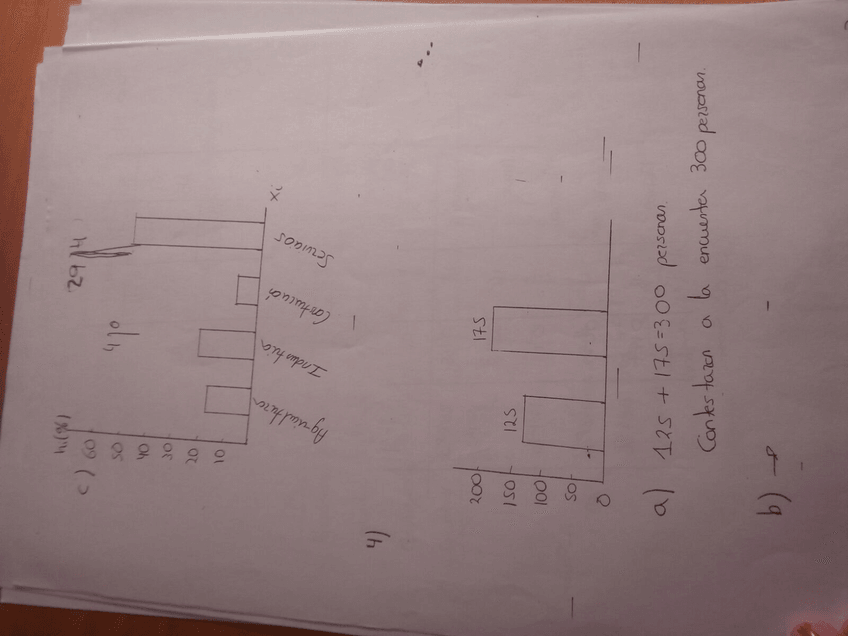 c) hi(%)
60
50
40
30
20
10
410
29
Agricultura
Industria
Servicios
xi
4)
200
150
100
50
0
125
175
a) 125 + 175 = 300 personas.
Contestaron a la encuesta 300 personas.
b)